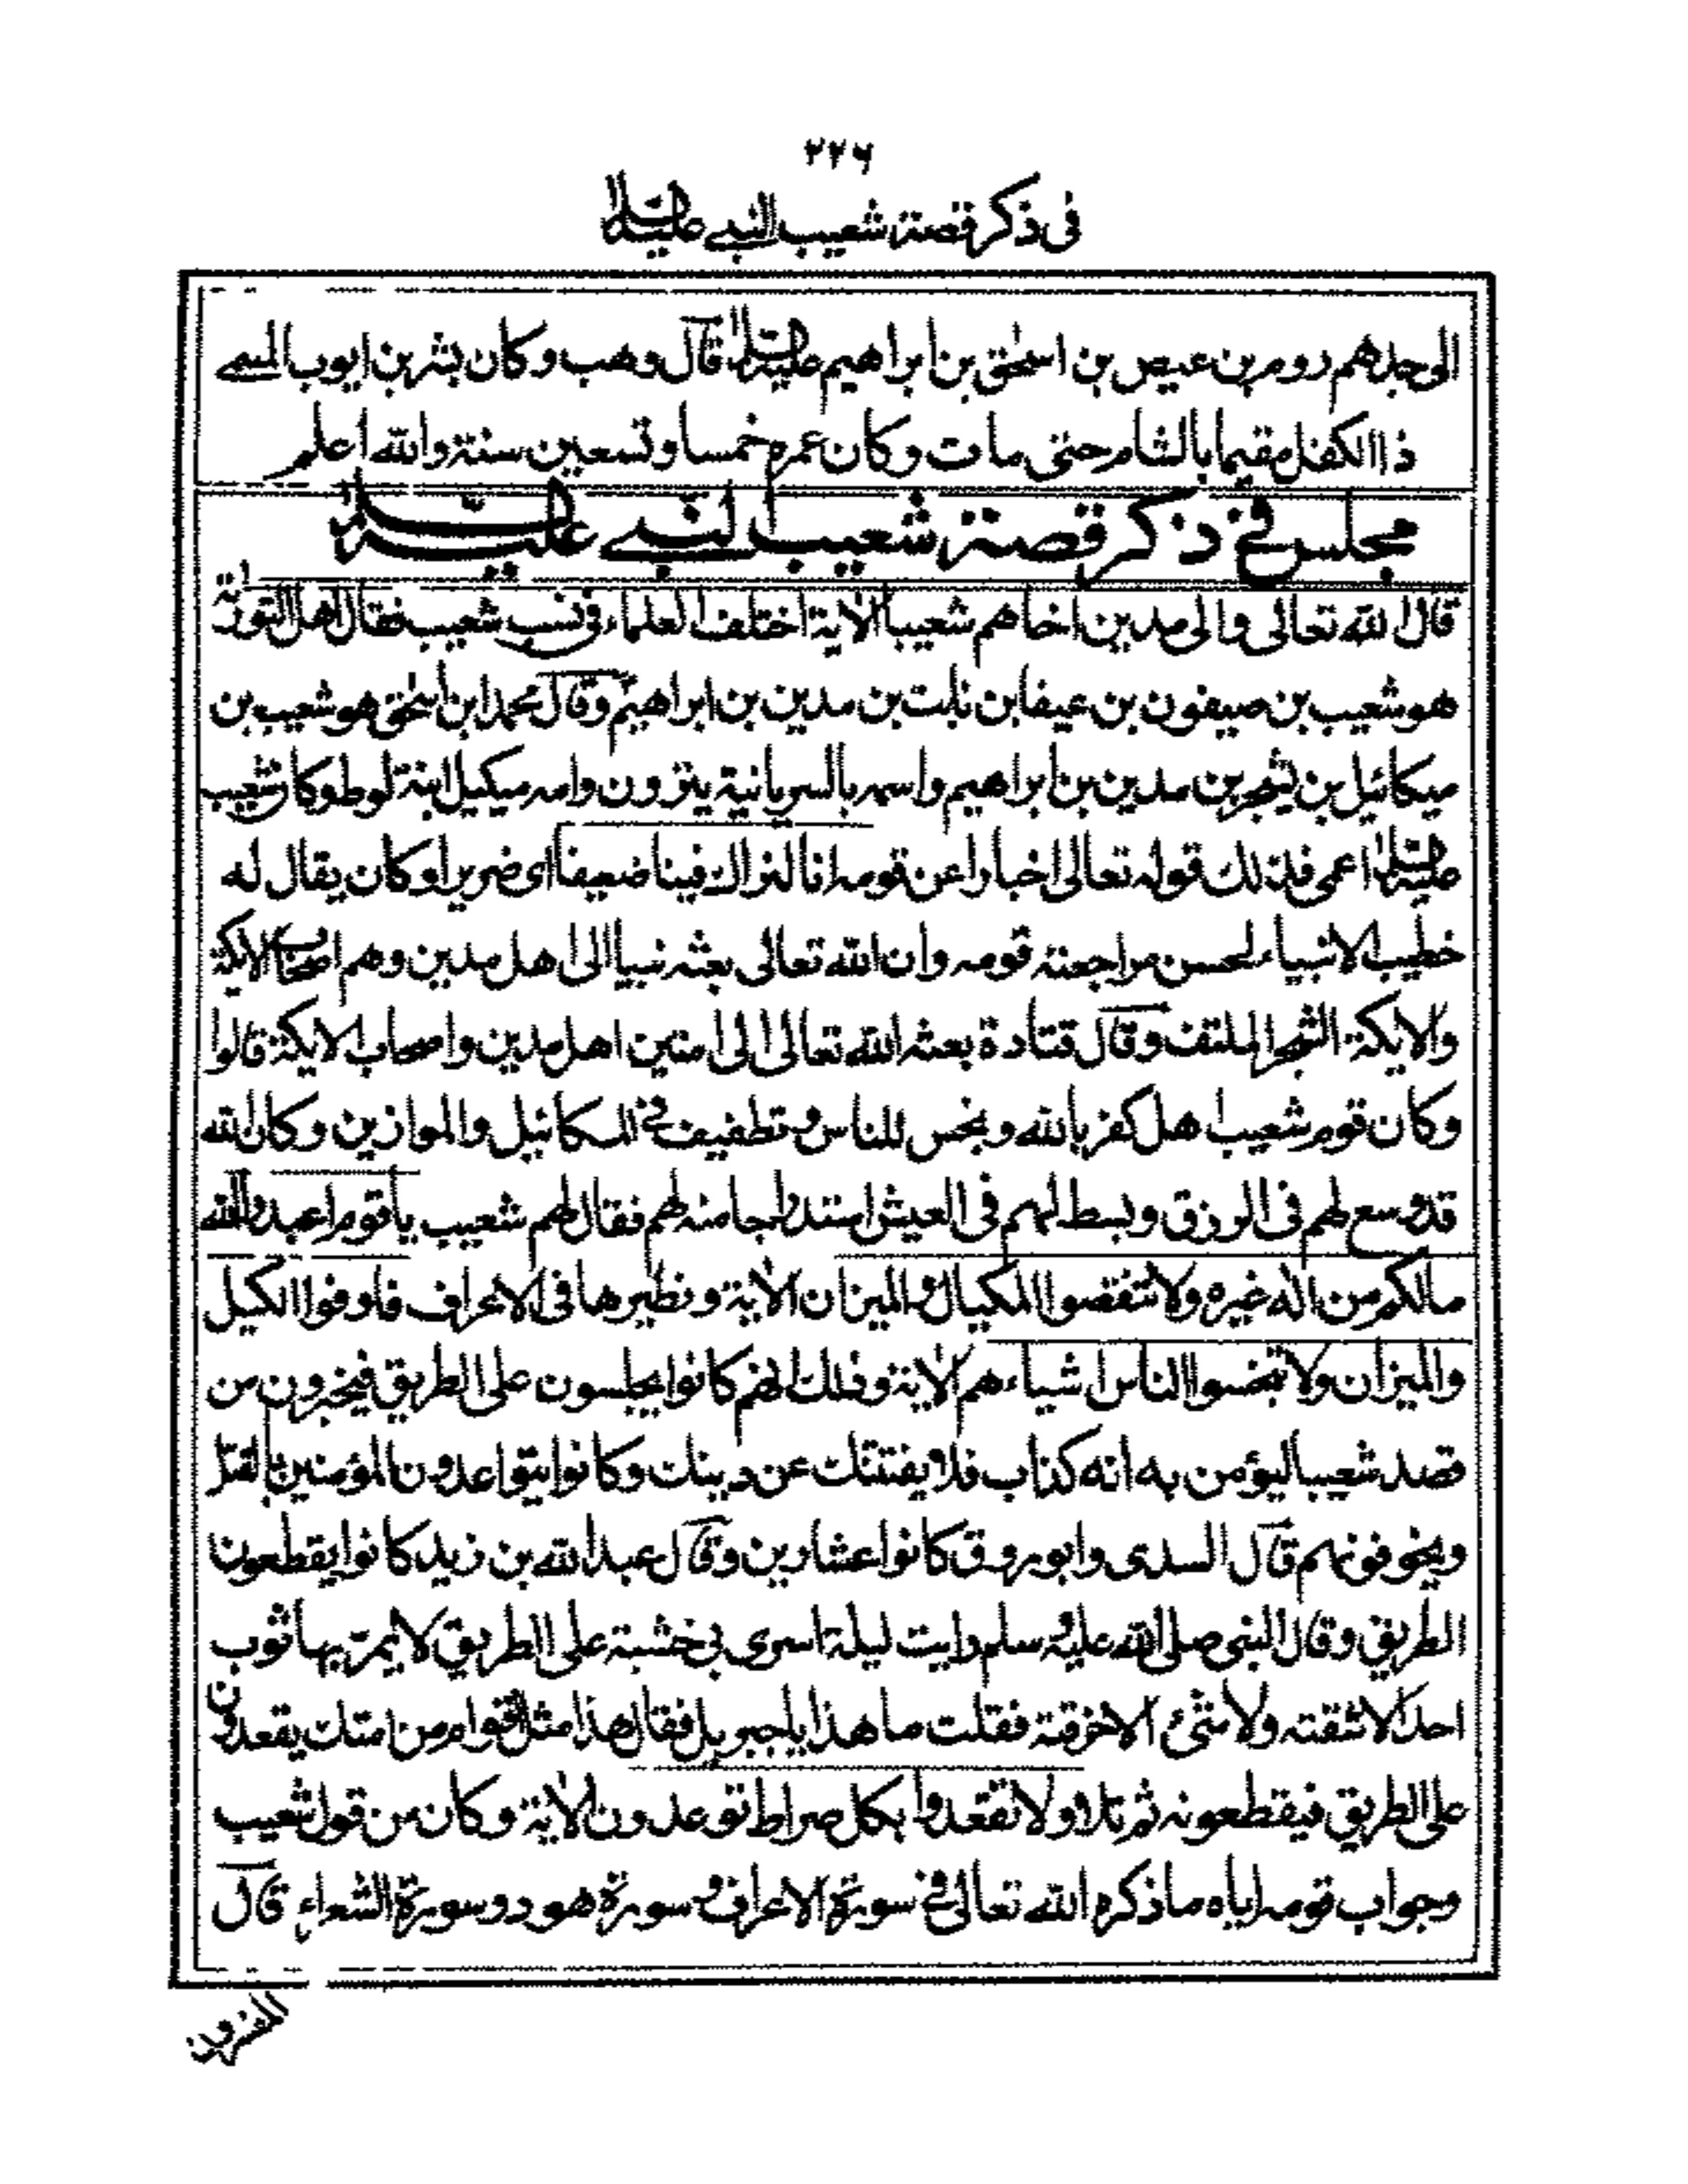 ٢٢٦
فى ذكر قصة شعيب النبى عليه السلام
الى جدهم روم بن عيص بن اسحٰق بن ابراهيم عليه السلام قال وهب وكان بشر بن ايوب المسمى
ذا الكفل مقيما بالشام حتى مات وكان عمره خمسا وتسعين سنة والله اعلم
مجلس فى ذكر قصة شعيب النبى عليه السلام
قال الله تعالى والى مدين اخاهم شعيبا الاية اختلف العلماء فى نسب شعيب فقال اهل التورٰة
هو شعيب بن صيفون بن عيفا بن نابت بن مدين بن ابراهيم وقال محمد ابن اسحٰق هو شعيب بن
ميكائيل بن يشجر بن مدين بن ابراهيم واسمه بالسريانية يترون وامه ميكيل ابنة لوط وكان شعيب
عليه السلام اعمى فلذلك قوله تعالى اخبارا عن قومه انا لنراك فينا ضعيفا اى ضريرا وكان يقال له
خطيب الانبياء لحسن مراجعته قومه وان الله تعالى بعثه نبيا الى اهل مدين وهم اصحاب الايكة
والايكة الشجر الملتف وقال قتادة بعثه الله تعالى الى امتين اهل مدين واصحاب الايكة قالوا
وكان قوم شعيب اهل كفر بالله وبخس للناس وتطفيف فى المكائيل والموازين وكان الله
قد وسع لهم فى الرزق وبسط لهم فى العيش استدراجا منه لهم فقال لهم شعيب ياقوم اعبدوا الله
مالكم من اله غيره ولا تنقصوا المكيال والميزان الاية ونظيرها فى الاعراف فاوفوا الكيل
والميزان ولا تبخسوا الناس اشياءهم الاية وذلك انهم كانوا يجلسون على الطريق فيخبرون من
قصد شعيبا ليؤمن به انه كذاب فلا يفتننك عن دينك وكانوا يتواعدون المؤمنين بالقتل
ويخوفونهم قال السدى وابو روق كانوا عشارين وقال عبد الله بن زيد كانوا يقطعون
الطريق وقال النبى صلى الله عليه وسلم رايت ليلة اسرى بى خشبة على الطريق لا يمر بها ثوب
احد الا شقته ولا شئ الا خرقته فقلت ما هذا ياجبريل فقال هذا مثل اقوام من امتك يقعدون
على الطريق فيقطعونه ثم تلا ولا تقعدوا بكل صراط توعدون الاية وكان من قول شعيب
وجواب قومه اياه ماذكره الله تعالى فى سورة الاعراف وسورة هود وسورة الشعراء قال
المفسرون